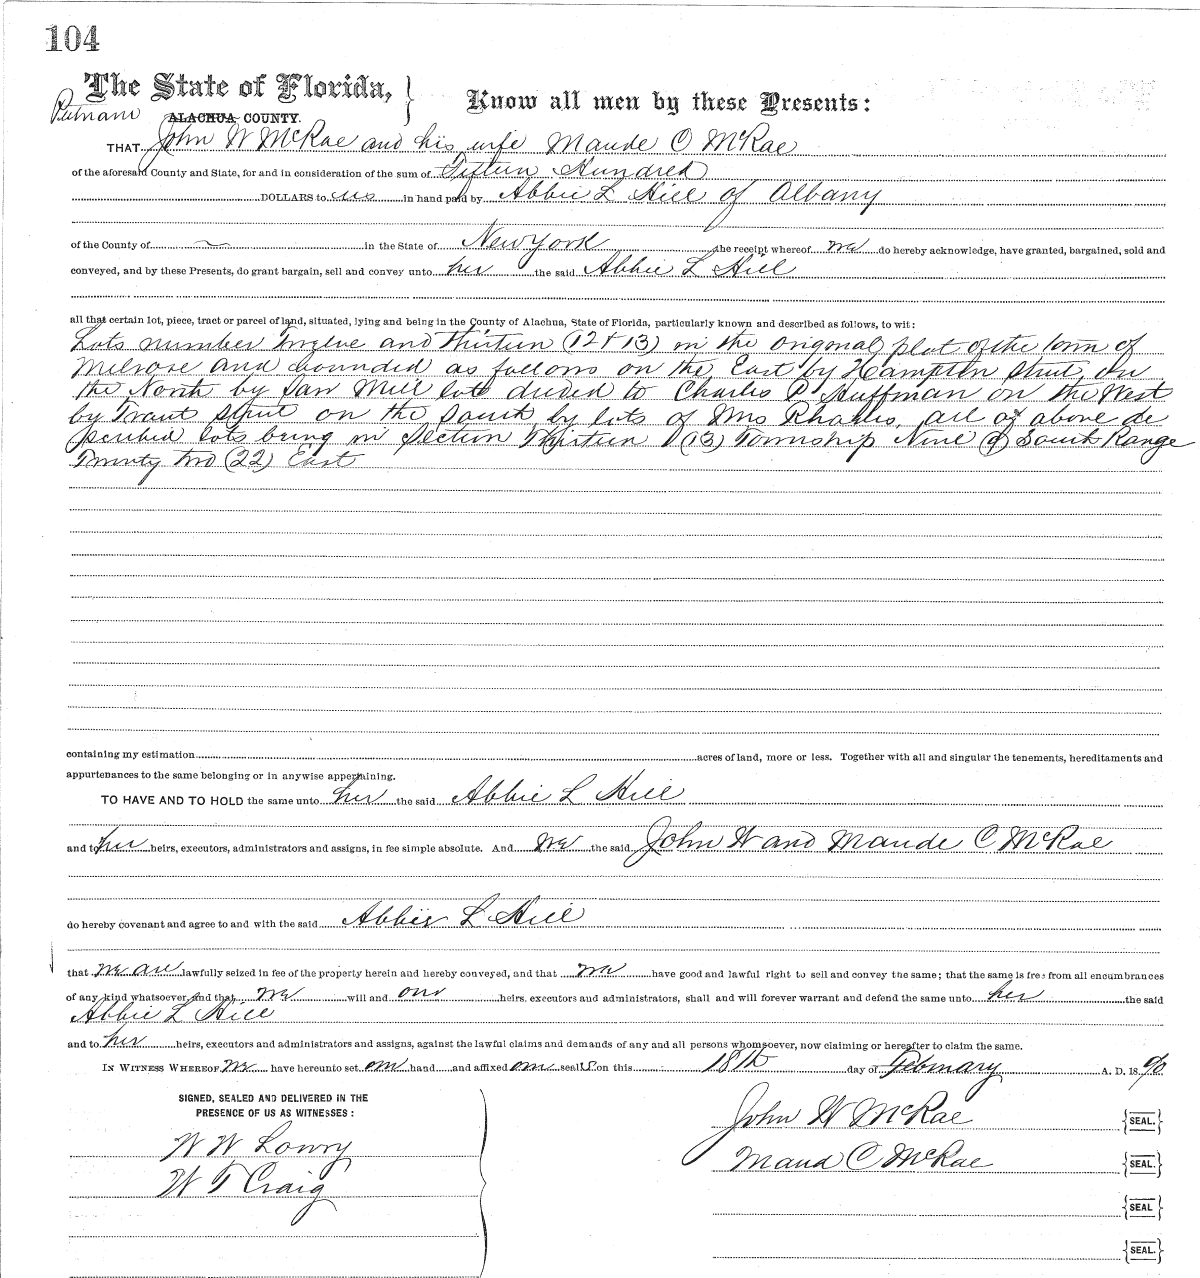 104
The State of Florida,
Putnam ALACHUA COUNTY.
Know all men by these Presents:
THAT John W McRae and his wife Maude C McRae
of the aforesaid County and State, for and in consideration of the sum of Fifteen Hundred
DOLLARS to us in hand paid by Abbie L Hill of Albany
of the County of in the State of New York the receipt whereof we do hereby acknowledge, have granted, bargained, sold and
conveyed, and by these Presents, do grant bargain, sell and convey unto her the said Abbie L Hill
all that certain lot, piece, tract or parcel of land, situated, lying and being in the County of Alachua, State of Florida, particularly known and described as follows, to wit:
Lots number Twelve and Thirteen (12 & 13) in the original plot of the town of
Melrose and bounded as follows on the East by Hampton Street, on
the North by Saw Mill lots deeded to Charles P Huffman on the West
by Trout Street on the South by lots of Mrs all of above de
scribed lots being in Section Thirteen (13) Township Nine (9) South Range
Twenty Two (22) East
containing my estimation acres of land, more or less. Together with all and singular the tenements, hereditaments and
appurtenances to the same belonging or in anywise appertaining.
TO HAVE AND TO HOLD the same unto her the said Abbie L Hill
and to her heirs, executors, administrators and assigns, in fee simple absolute. And we the said John W and Maude C McRae
do hereby covenant and agree to and with the said Abbie L Hill
that we are lawfully seized in fee of the property herein and hereby conveyed, and that we have good and lawful right to sell and convey the same; that the same is free from all encumbrances
of any kind whatsoever, and that we will and our heirs. executors and administrators, shall and will forever warrant and defend the same unto her the said
Abbie L Hill
and to her heirs, executors and administrators and assigns, against the lawful claims and demands of any and all persons whomsoever, now claiming or hereafter to claim the same.
IN WITNESS WHEREOF, we have hereunto set our hand and affixed our seals on this 18th day of February A. D. 1890
SIGNED, SEALED AND DELIVERED IN THE
PRESENCE OF US AS WITNESSES:
W W Lowry
W T Craig
John W McRae SEAL.
Maud C McRae SEAL.
SEAL
SEAL.